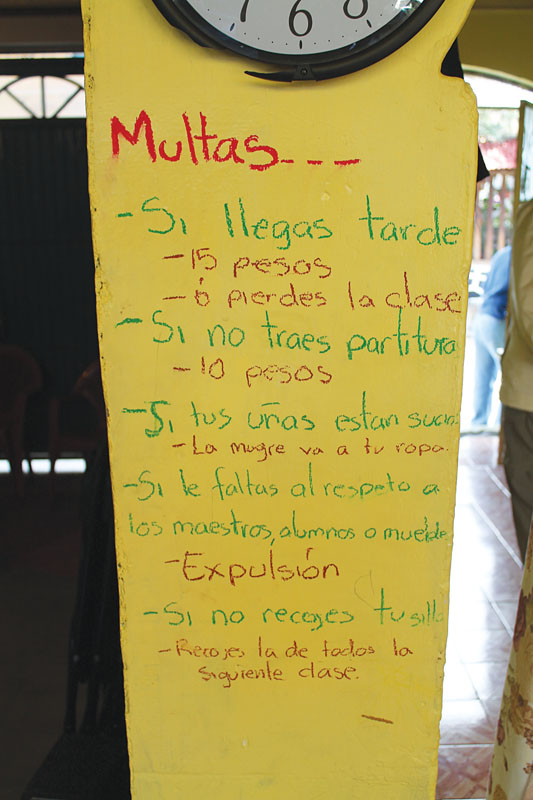 7 6 8
Multas...
- Si llegas tarde
- 15 pesos
- ó pierdes la clase
- Si no traes partitura
- 10 pesos
- Si tus uñas estan
- La mugre va a tu ropa.
- Si le faltas al respeto a
los maestros, alumnos o
- Expulsión
- Si no recojes tu
- Recojes la de todos la
siguiente clase.